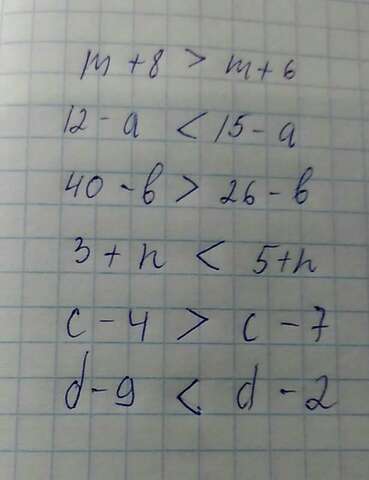 m + 8 > m + 6
12 - a < 15 - a
40 - b > 26 - b
3 + n < 5 + n
c - 4 > c - 7
d - 9 < d - 2